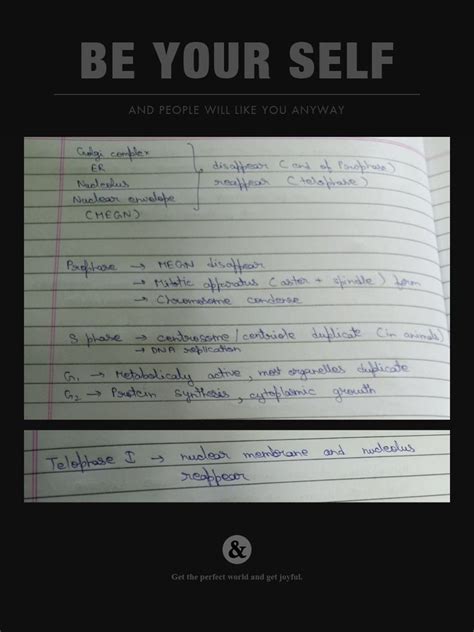 BE YOUR SELF
AND PEOPLE WILL LIKE YOU ANYWAY
Golgi complex
ER
Nucleolus
Nuclear envelope
(MEGN)
disappear (end of Prophase)
reappear (telophase)
Prophase → MEGN disappear
→ Mitotic apparatus (aster + spindle) form
→ Chromosome condense
S phase → centrosome/centriole duplicate (in animals)
→ DNA replication
G1 → Metabolicaly active, most organelles duplicate
G2 → Protein synthesis, cytoplasmic growth
Telophase I → nuclear membrane and nucleolus
reappear
&
Get the perfect world and get joyful.